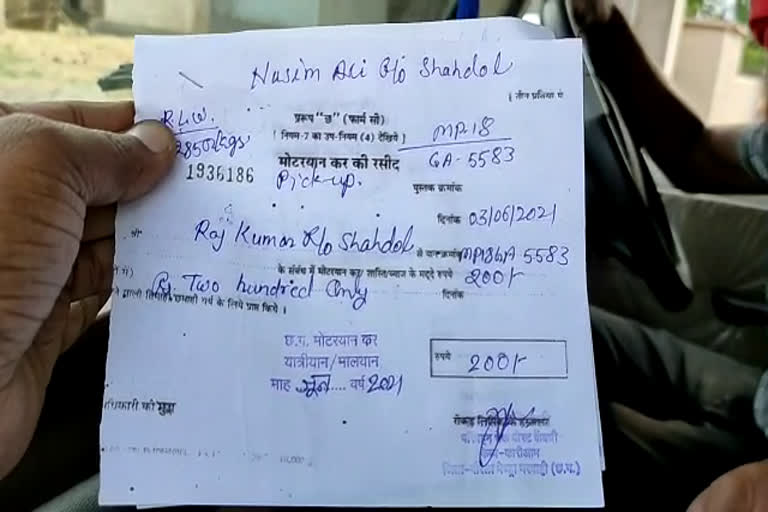 Nasim Ali R/o Shahdol
( तीन प्रतियां में
R.L.W.
2850/kgs
प्ररूप "छ" (फार्म सी)
( नियम-7 का उप-नियम (4) देखिये )
MP18
GA-5583
1936186
मोटरयान कर की रसीद
Pick-up.
पुस्तक क्रमांक
दिनांक 03/06/2021
श्री Raj Kumar R/o Shahdol से यान क्रमांक MP18GA 5583
के संबंध में मोटरयान कर/ शास्ति/ब्याज के मद्दे रुपये 200/-
Rs. Two hundred Only
दिनांक
के लिये प्राप्त किये ।
छ.ग. मोटरयान कर
यात्रीयान/मालयान
माह जून .... वर्ष 2021
रुपये 200/-
धिकारी की मुद्रा
(छ.ग.)